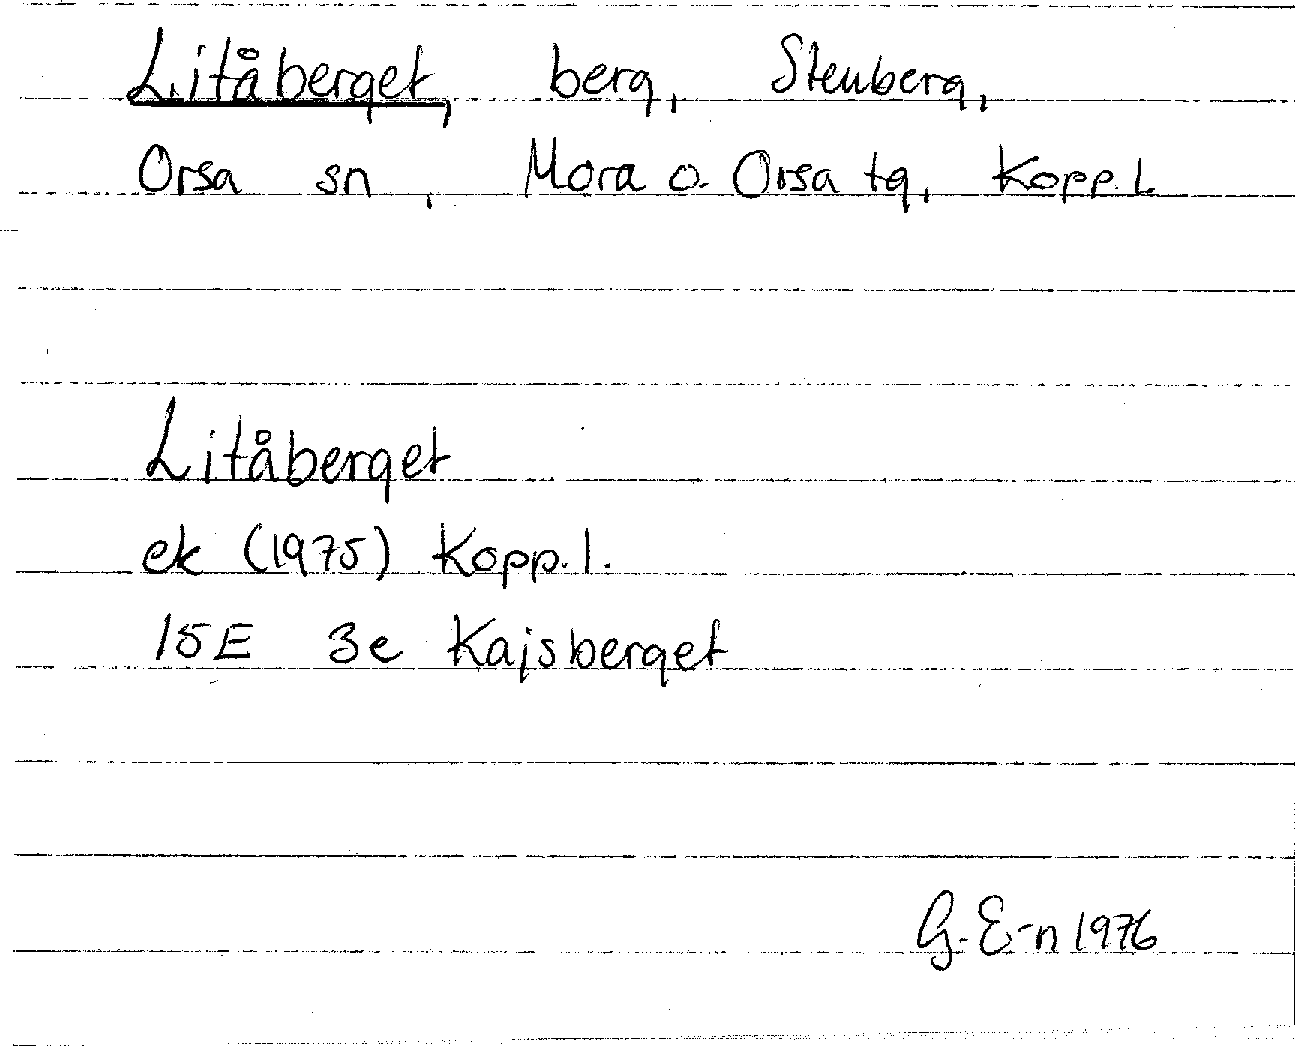 Litåberget, berg, Stenberg,
Orsa sn, Mora o. Orsa tg, Kopp. l.
Litåberget
ek (1975) Kopp. l.
15E 3e Kajsberget
G. E-n 1976